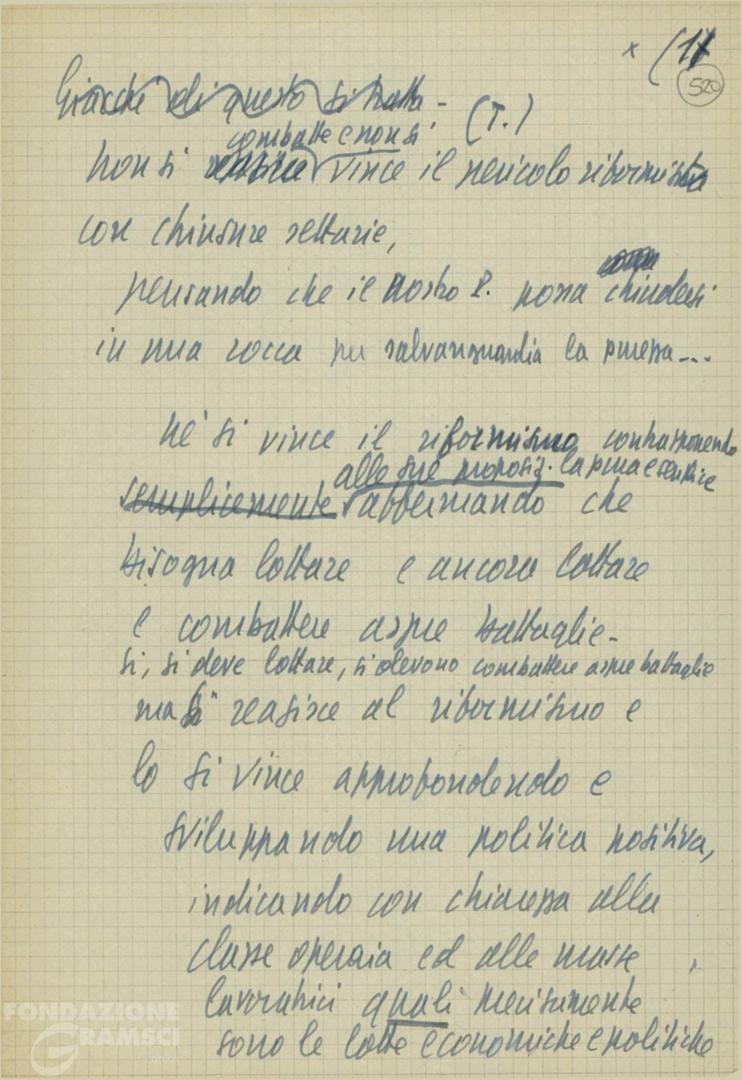 x (11
520
Giacché di questo si tratta - (T.)
combatte e non si
non si reagisce vince il pericolo riformista
con chiusure settarie,
pensando che il nostro P. possa chiudersi
in una rocca per salvanguardia la purezza...
Né si vince il riformismo contrapponendo
alle sue proposiz. la pura e semplice
semplicemente affermando che
bisogna lottare e ancora lottare
e combattere aspre battaglie -
Sì, si deve lottare, si devono combattere aspre battaglie
ma si reagisce al riformismo e
lo si vince approfondendo e
sviluppando una politica positiva,
indicando con chiarezza alla
classe operaia ed alle masse
lavoratrici quali precisamente
sono le lotte economiche e politiche
FONDAZIONE
GRAMSCI